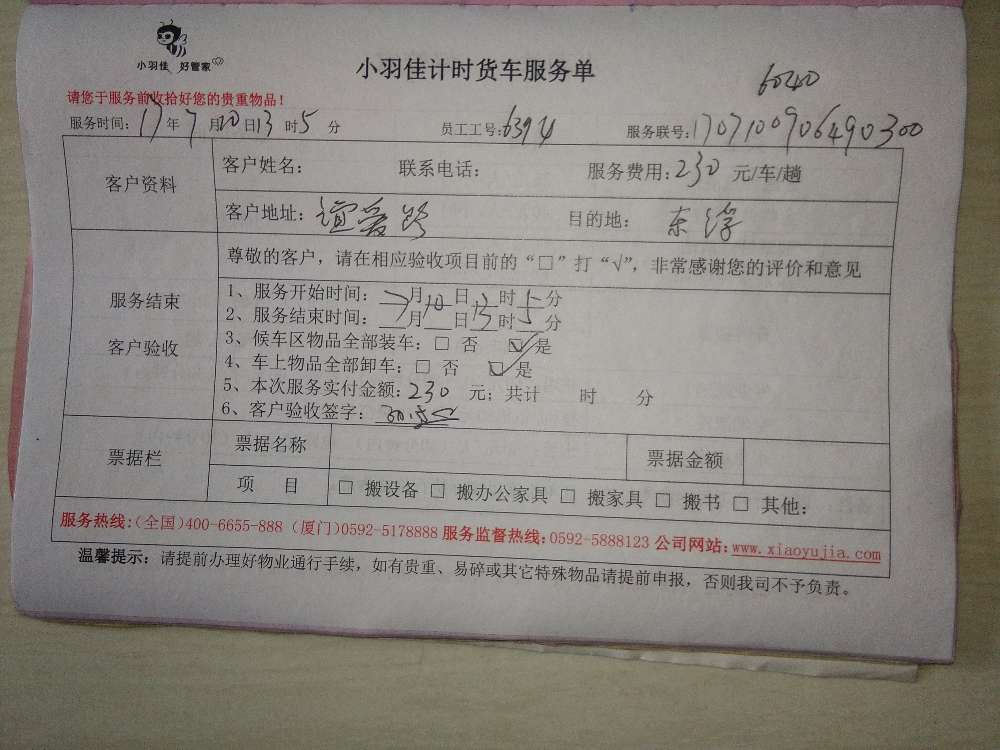 小羽佳 好管家
小羽佳计时货车服务单
6040
请您于服务前收拾好您的贵重物品！
服务时间：17年7月10日13时5分 员工工号：6394 服务联号：1707100906490300
客户资料
客户姓名： 联系电话： 服务费用：230 元/车/趟
客户地址：谊爱路 目的地： 东浮
服务结束
客户验收
尊敬的客户，请在相应验收项目前的“□”打“√”，非常感谢您的评价和意见
1、服务开始时间：7月10日13时5分
2、服务结束时间：__月__日13时5分
3、候车区物品全部装车：□ 否 ☑ 是
4、车上物品全部卸车：□ 否 ☑ 是
5、本次服务实付金额：230 元；共计 时 分
6、客户验收签字：
票据栏
票据名称 票据金额
项 目 □ 搬设备 □ 搬办公家具 □ 搬家具 □ 搬书 □ 其他：
服务热线：（全国）400-6655-888（厦门）0592-5178888 服务监督热线：0592-5888123 公司网站：www.xiaoyujia.com
温馨提示：请提前办理好物业通行手续，如有贵重、易碎或其它特殊物品请提前申报，否则我司不予负责。